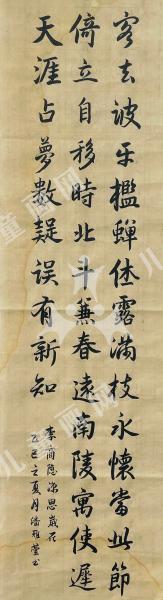 客去波平檻蟬休露滿枝永懷當此節
倚立自移時北斗兼春遠南陵寓使遲
天涯占夢數疑誤有新知
李商隱涼思歲在
乙巳立夏月潘雅書